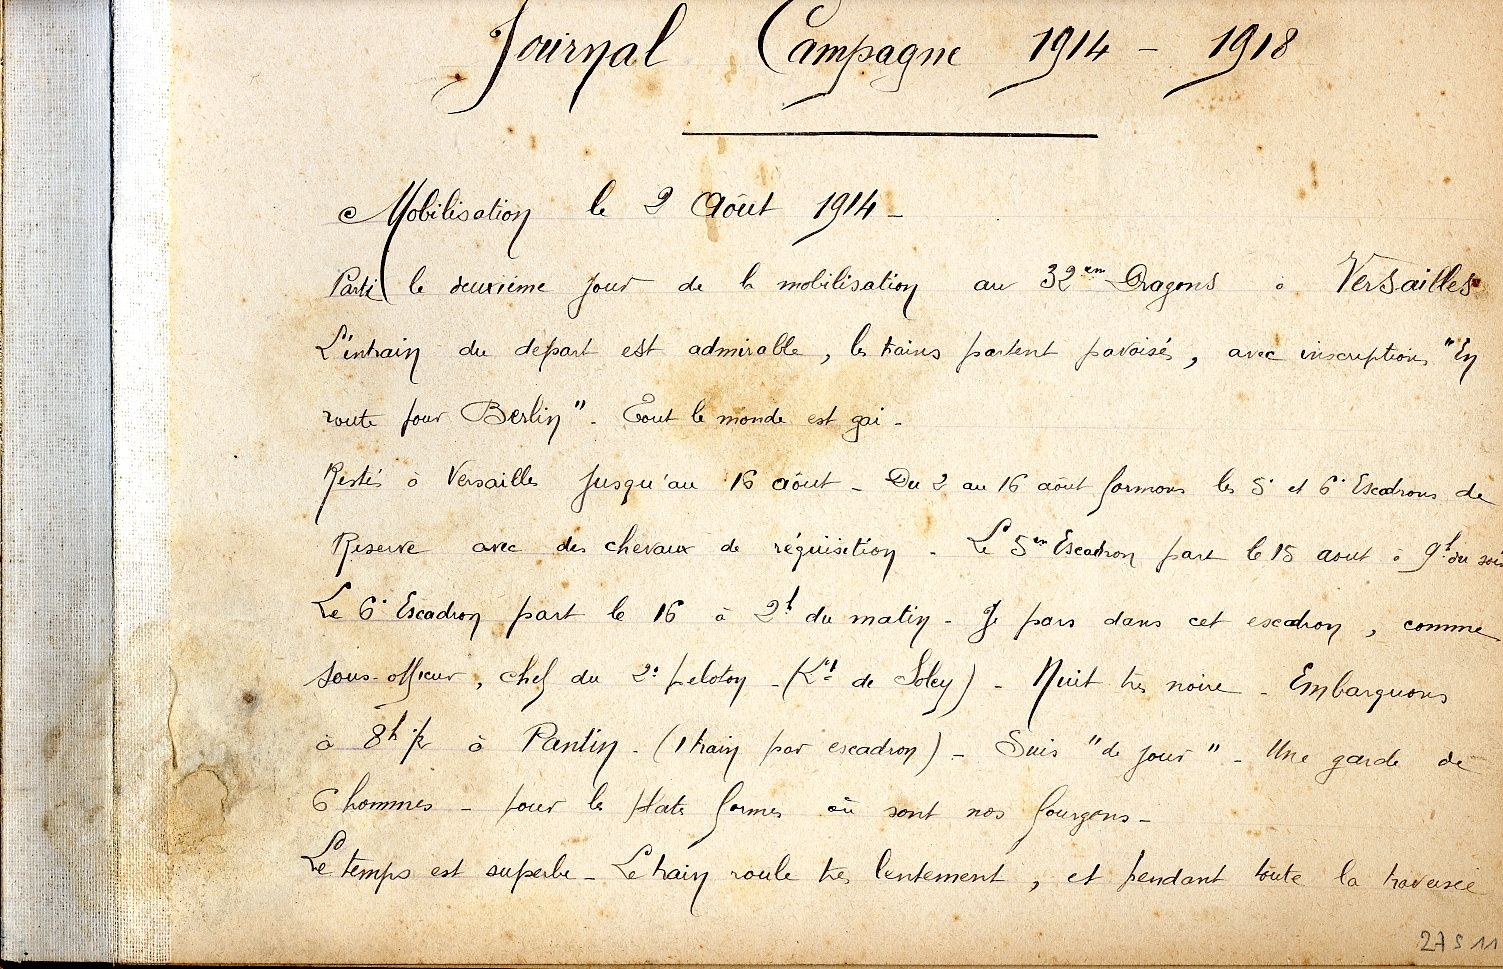 Journal Campagne 1914 - 1918
Mobilisation le 2 Août 1914 -
Parti le deuxième jour de la mobilisation au 32em Dragons à Versailles
L'entrain du départ est admirable, les trains partent pavoisés, avec inscriptions "En
route pour Berlin" - Tout le monde est gai -
Restés à Versailles jusqu'au 16 août - Du 2 au 16 août formons les 5e et 6e Escadrons de
Réserve avec des chevaux de réquisition - Le 5em Escadron part le 15 aout à 9h du soir
Le 6e Escadron part le 16 à 2h du matin - Je pars dans cet escadron, comme
sous-officier, chef du 2e peloton - (Lt de Soley) - Nuit très noire - Embarquons
à 8h à Pantin - (1 train par escadron) - Suis "de jour" - Une garde de
6 hommes - pour les plates formes où sont nos fourgons -
Le temps est superbe - Le train roule très lentement, et pendant toute la traversée
27 S 11